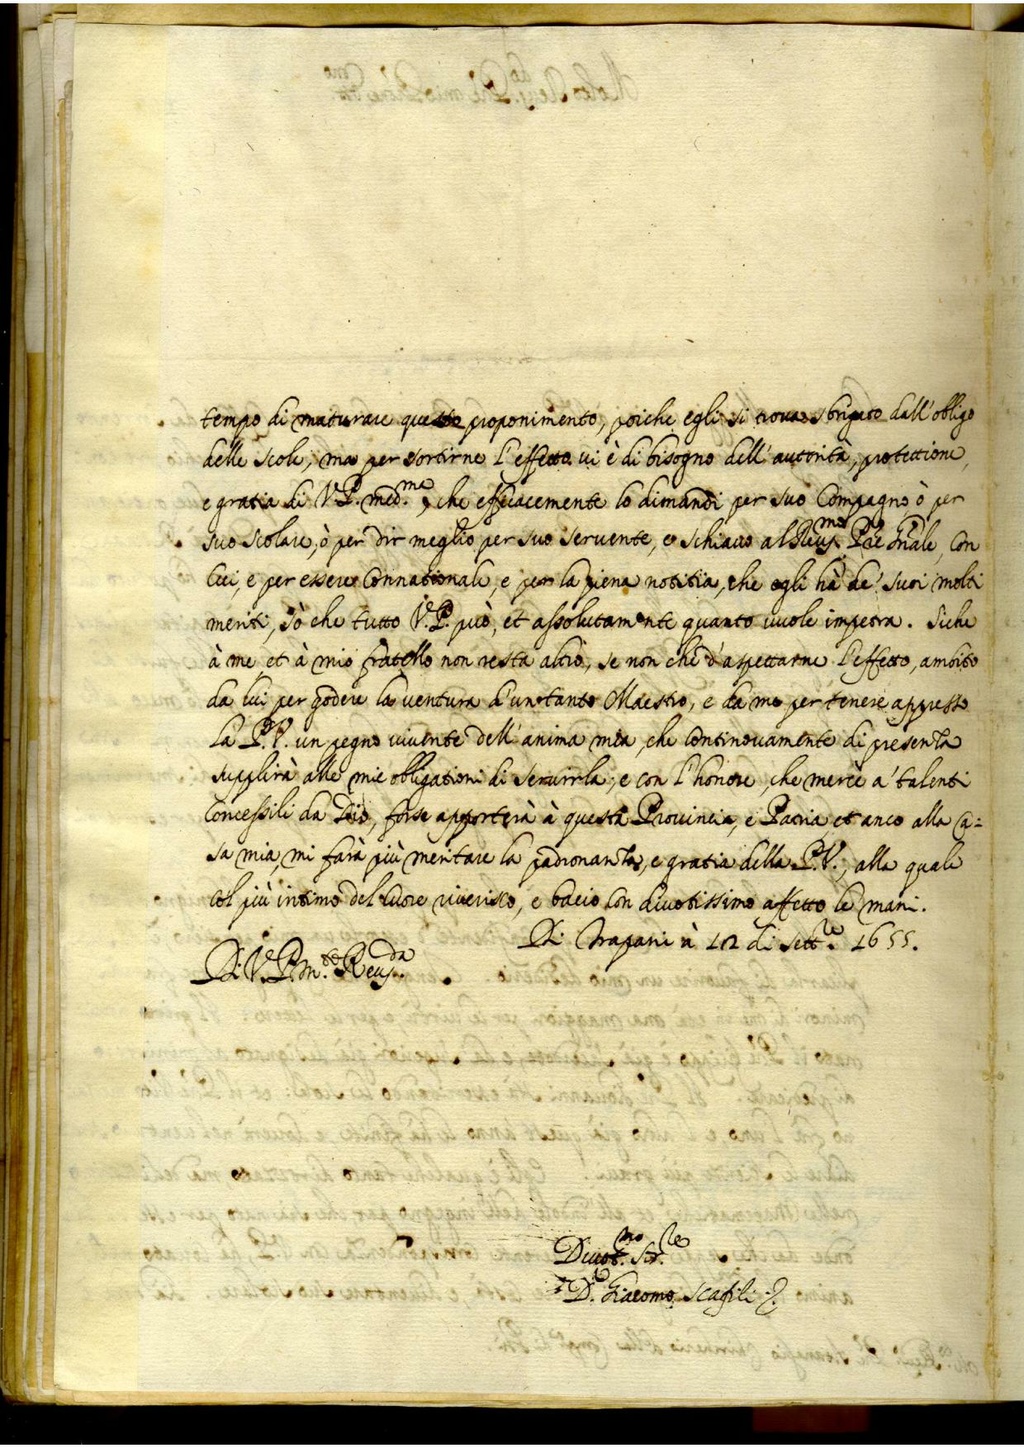 tempo di maturare questo proponimento, poiche egli si trova sbrigato dall'obligo
delle scole, ma per sortirne l'effetto vi è di bisogno dell'autorità, protettione,
e gratia di V.P. med.ma, che efficacemente lo dimandi per suo Compagno ò per
suo scolare, ò per dir meglio per suo servente, e schiavo al Reu.mo P.re Gñale, con
cui, e per essere Connationale, e per la piena notitia, che egli hà de' suoi molti
meriti, sò che tutto V.P. può, et assolutamente quanto vuole impetra. Siche
à me et à mio fratello non resta altro, se non che d'aspettarne l'effetto, ambito
da lui per godere la ventura d'un tanto Maestro, e da me per tenere appresso
la P.V. un pegno vivente dell'anima mea, che continovamente di presenza
supplirà alle mie obligationi di servirla; e con l'honore, che mercè a' talenti
concessili da Dio, forse apporterà à questa Provincia, e Patria et anco alla Ca=
sa mia, mi farà più meritare la padronanza, e gratia della P.V., alla quale
col più intimo del cuore riverisco, e bacio con divotissimo affetto le mani.
Di Trapani à 12 di Sett.re 1655.
Di V.P. m.to Reu.da
Divot.mo Ser.re
D. Giacomo Scafili